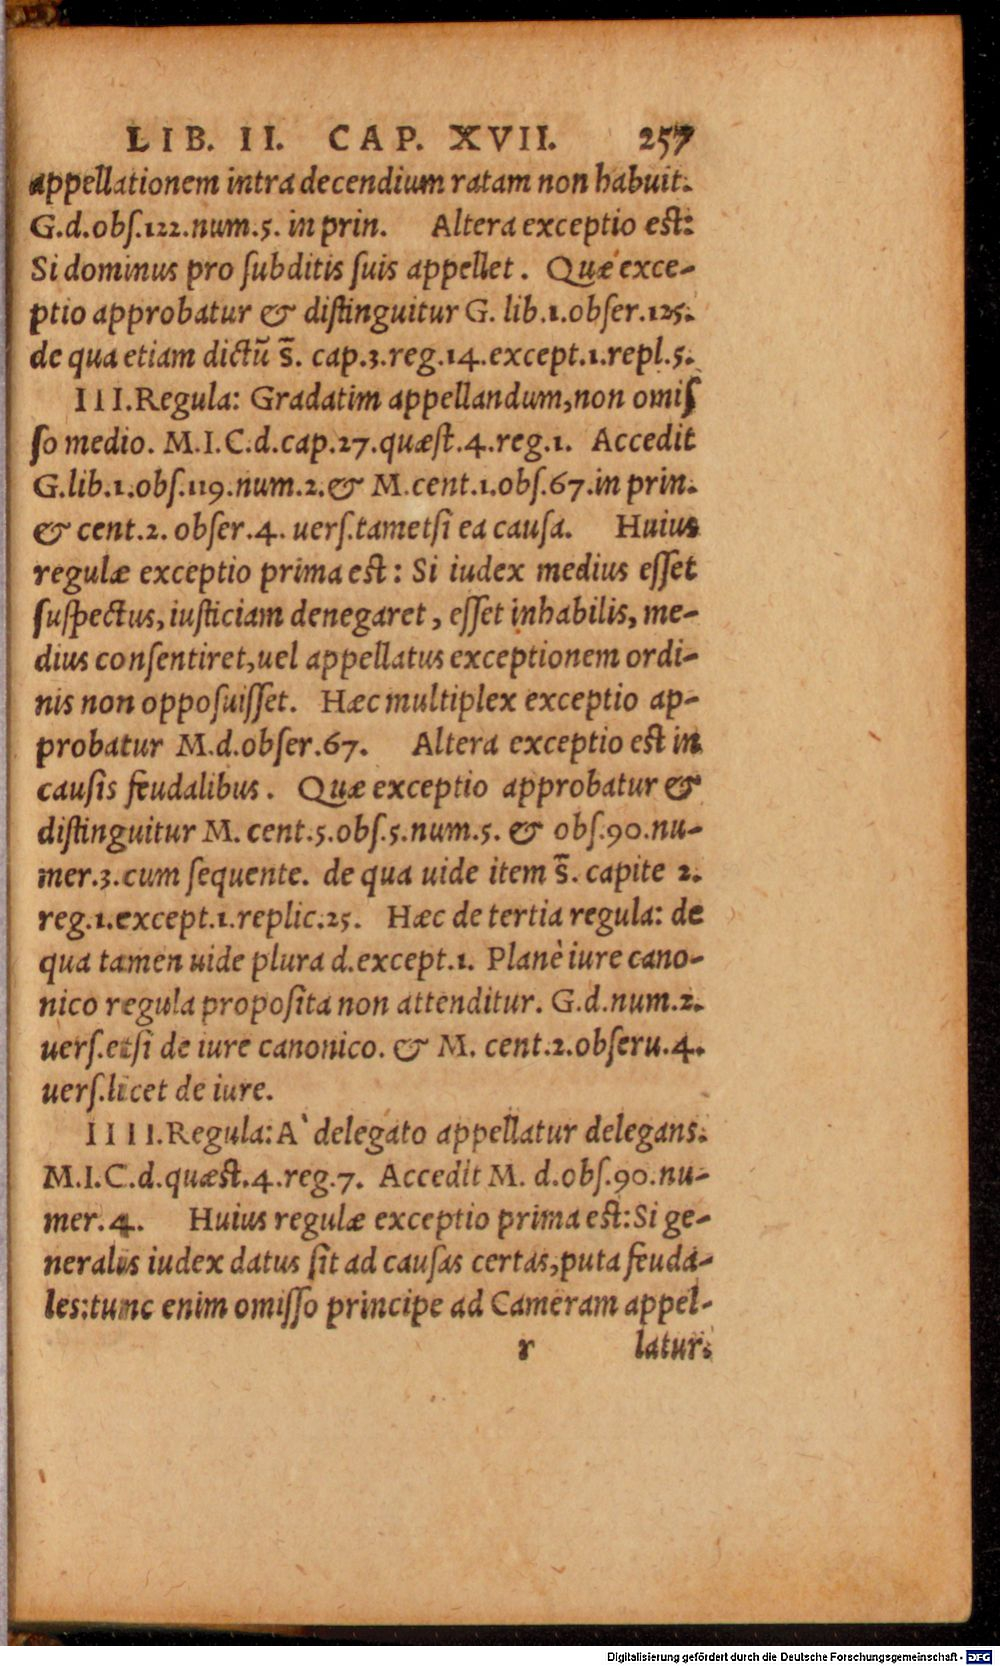 LIB. II. CAP. XVII. 257
appellationem intra decendium ratam non habuit.
G.d.obſ.122.num.5. in prin. Altera exceptio est:
Si dominus pro ſubditis ſuis appellet. Quæ exce-
ptio approbatur & distinguitur G. lib.1.obſer.125.
de qua etiam dictũ s̄. cap.3.reg.14.except.1.repl.5.
III.Regula: Gradatim appellandum,non omiſ
ſo medio. M.I.C.d.cap.27.quæst.4.reg.1. Accedit
G.lib.1.obſ.119.num.2.& M.cent.1.obſ.67.in prin.
& cent.2. obſer.4. uerſ.tametſi ea cauſa. Huius
regulæ exceptio prima est: Si iudex medius eſſet
ſuſpectus,iuſticiam denegaret, eſſet inhabilis, me-
dius conſentiret,uel appellatus exceptionem ordi-
nis non oppoſuiſſet. Hæc multiplex exceptio ap-
probatur M.d.obſer.67. Altera exceptio est in
cauſis feudalibus. Quæ exceptio approbatur &
distinguitur M. cent.5.obſ.5.num.5. & obſ.90.nu-
mer.3.cum ſequente. de qua uide item s̄. capite 2.
reg.1.except.1.replic.25. Hæc de tertia regula: de
qua tamen uide plura d.except.1. Planè iure cano-
nico regula propoſita non attenditur. G.d.num.2.
uerſ.etſi de iure canonico. & M. cent.2.obſeru.4.
uerſ.licet de iure.
IIII.Regula: A` delegato appellatur delegans.
M.I.C.d.quæst.4.reg.7. Accedit M. d.obſ.90.nu-
mer.4. Huius regulæ exceptio prima est:Si ge-
neralis iudex datus ſit ad cauſas certas,puta feuda-
les:tunc enim omiſſo principe ad Cameram appel-
r latur.
Digitalisierung gefördert durch die Deutsche Forschungsgemeinschaft - DFG